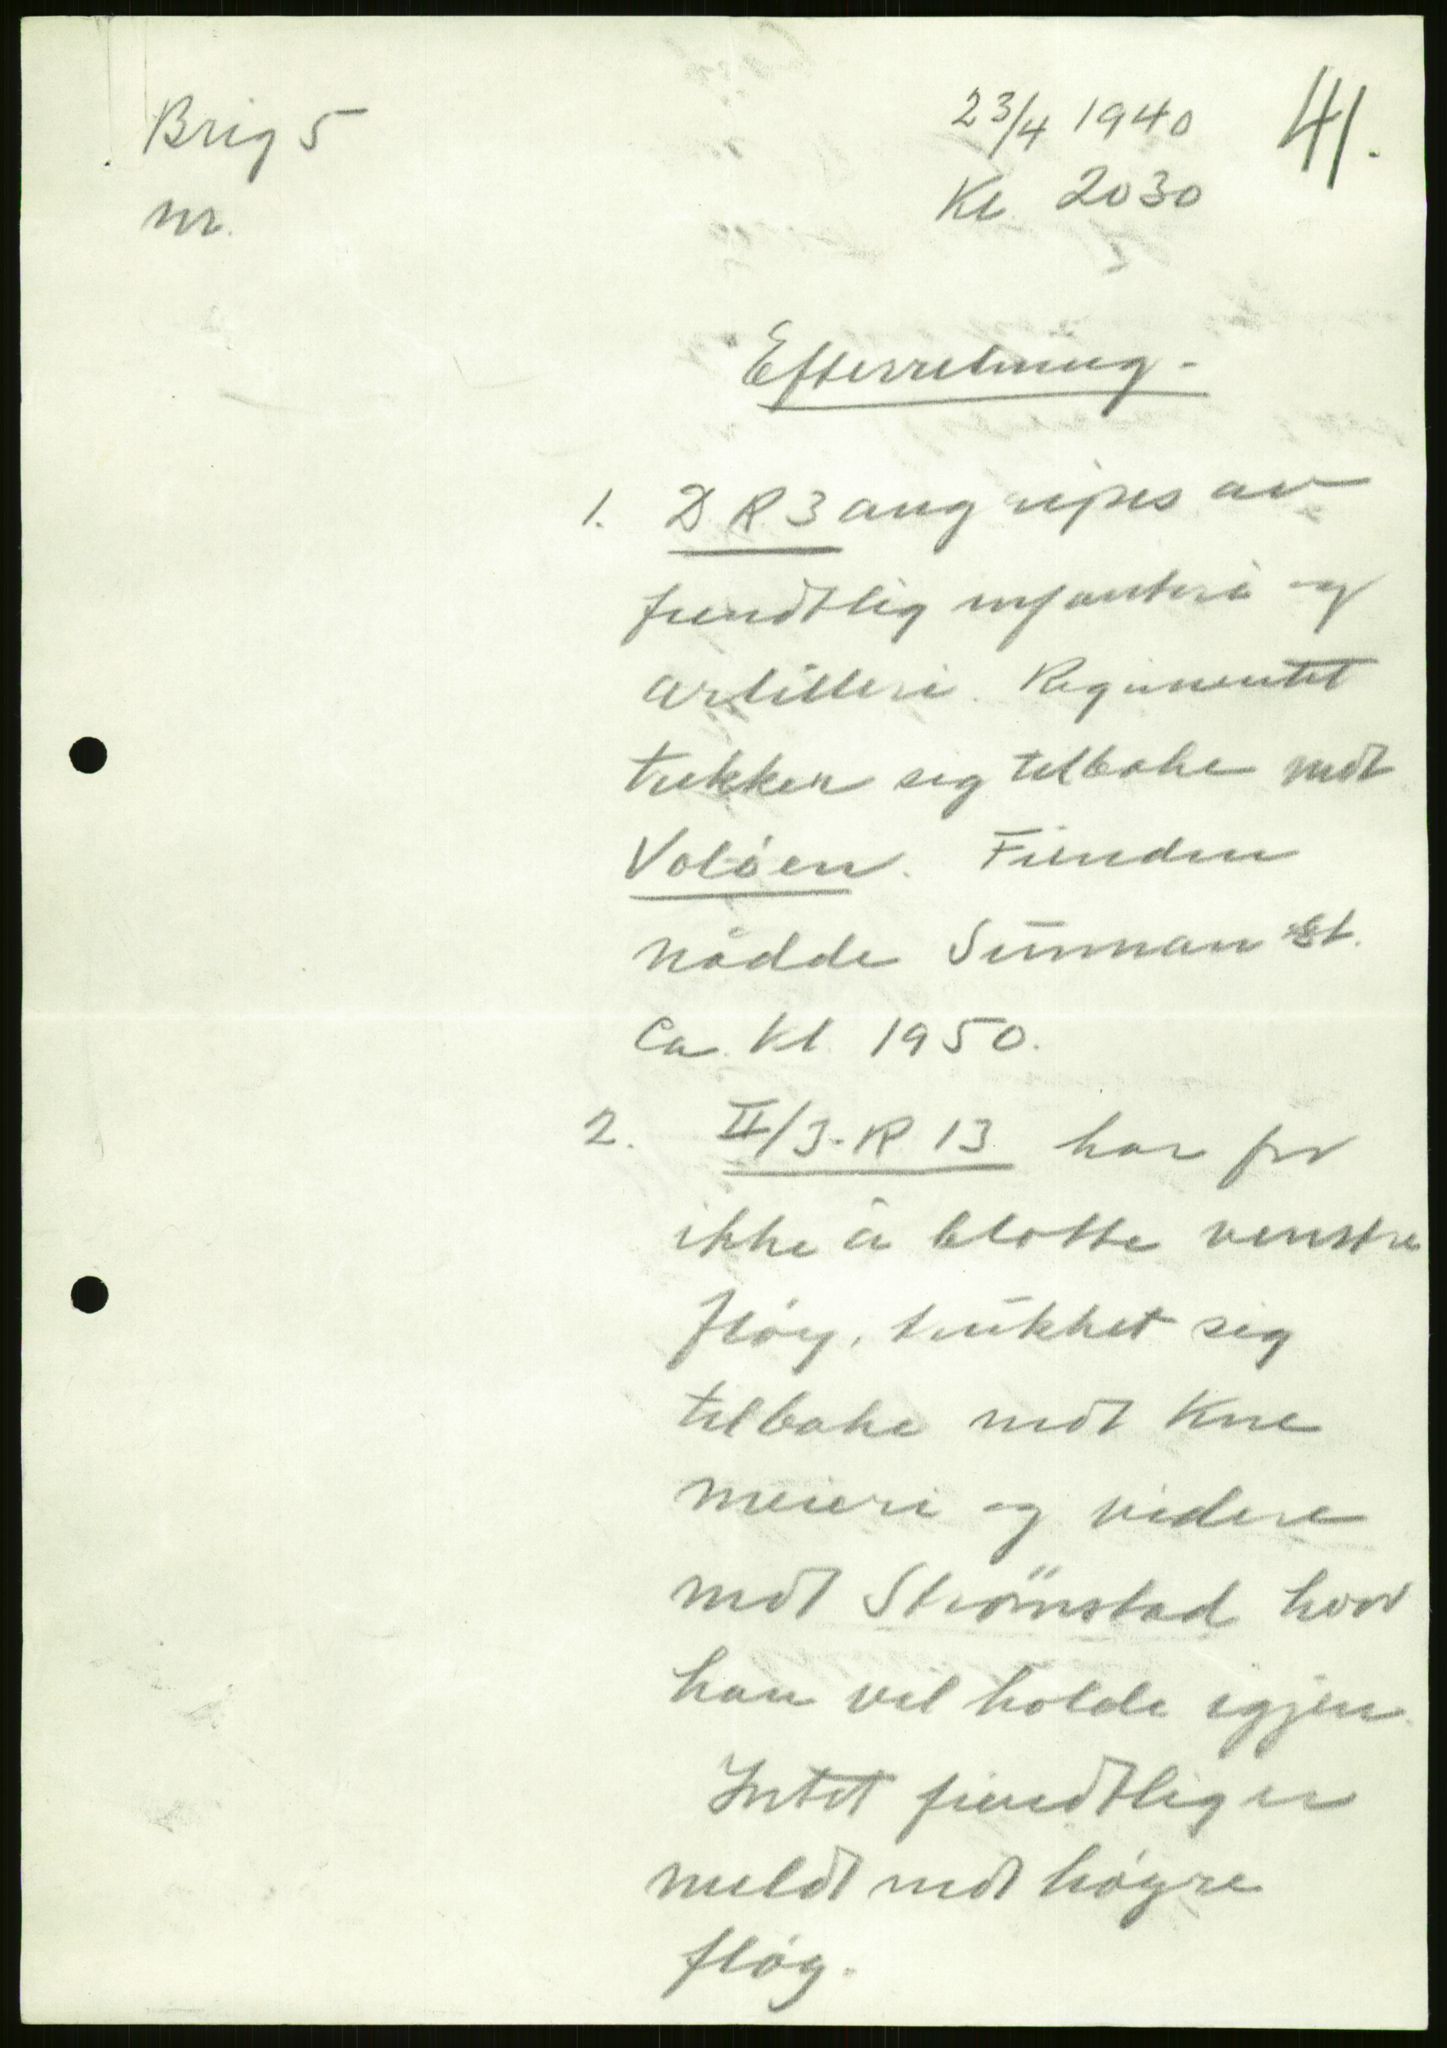 Brig 5
nr.
23/4 1940
Kl. 2030
41.
Efterretning.
1. D R 3 angripes av
fiendtlig infanteri og
artilleri. Regimentet
trekker sig tilbake mot
Volden. Fienden
nådde Sunnan st.
Ca. kl. 1950.
2. II/J.R. 13 har for
ikke å blotte venstre
fløy, trukket sig
tilbake mot Kne
meieri og videre
mot Strömstad hvor
han vil holde igjen.
Intet fiendtlig er
meldt mot høgre
fløy.